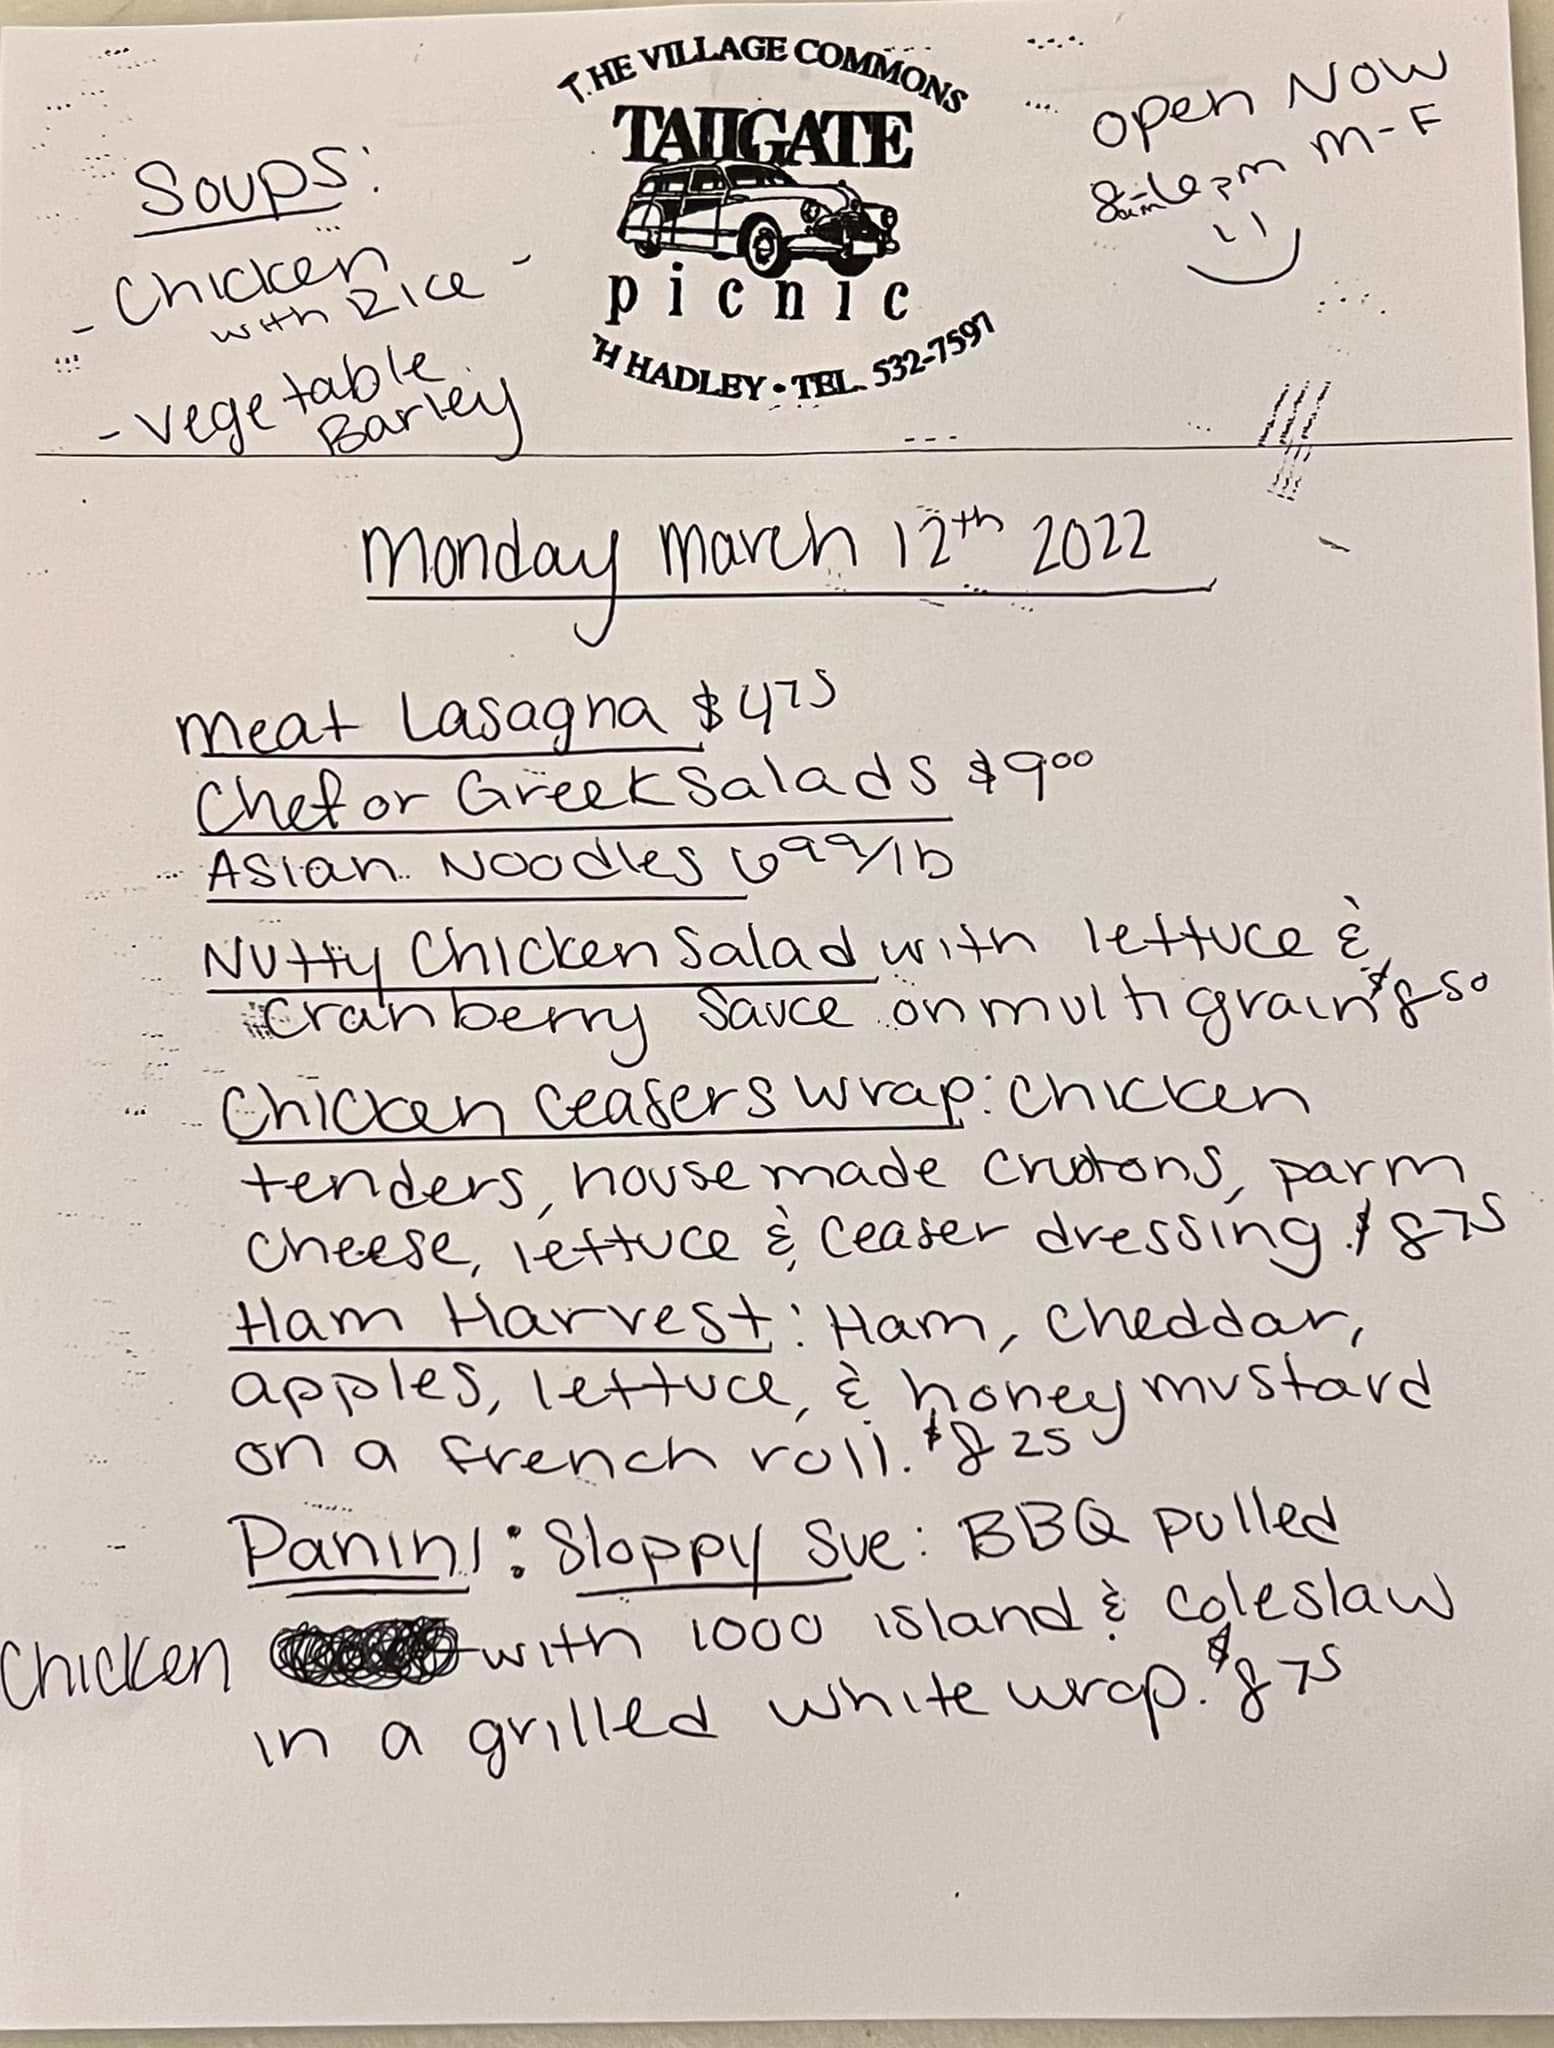 THE VILLAGE COMMONS
TAILGATE
picnic
H HADLEY • TEL. 532-7597
Soups:
- Chicken
with Rice -
- Vegetable
Barley
open NOW
8am-6pm M-F
Monday March 12th 2022
Meat Lasagna $475
Chef or Greek Salads $900
Asian Noodles 699/lb
Nutty Chicken Salad with lettuce &
cranberry sauce on multigrain $850
Chicken Ceasers Wrap: Chicken
tenders, housemade crutons, parm
cheese, lettuce & ceaser dressing. $875
Ham Harvest: Ham, cheddar,
apples, lettuce, & honey mustard
on a french roll. $825
Panini: Sloppy Sue: BBQ pulled
Chicken with 1000 island & coleslaw
in a grilled white wrap. $875